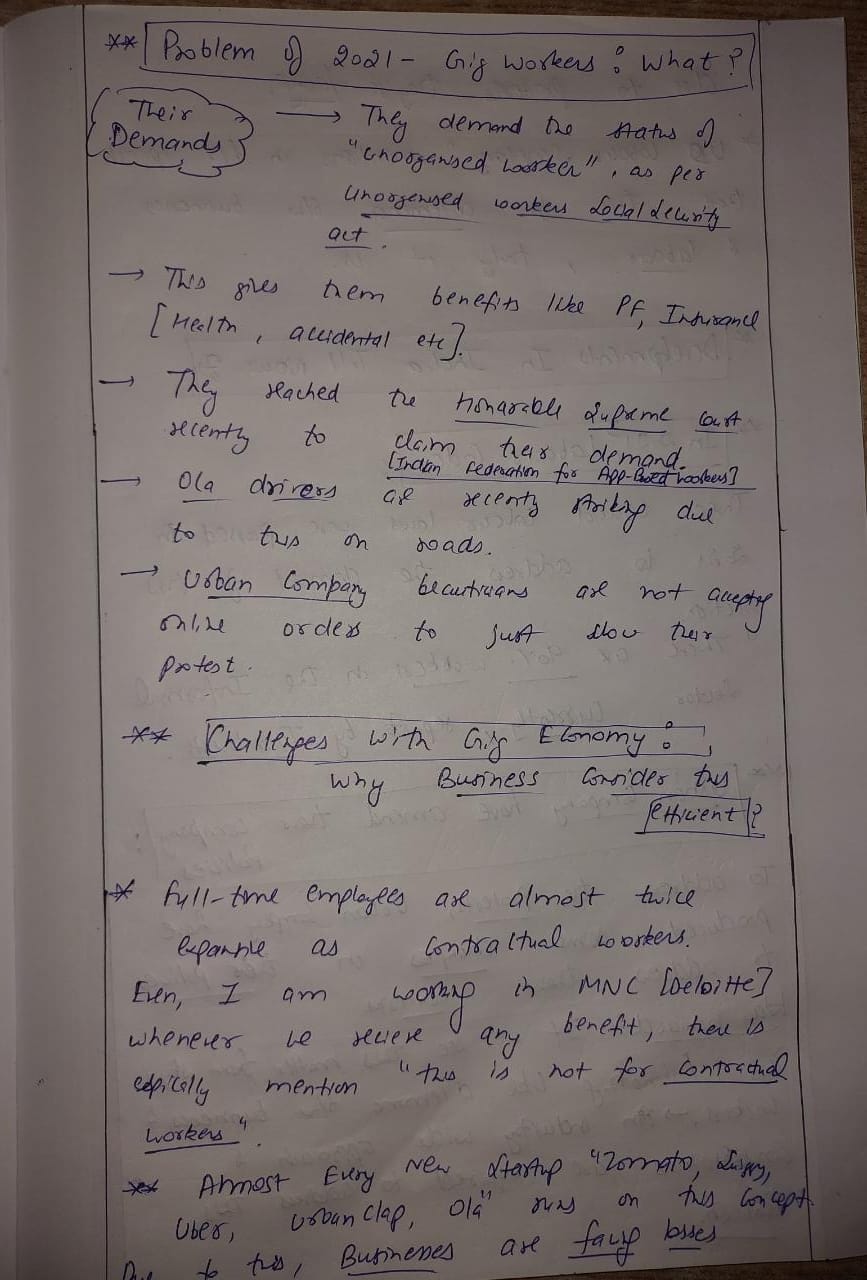 ** Problem of 2021 - Gig Workers : What ?
Their
Demands
→ They demand the status of
"Unorganised worker", as per
Unorgenised workers Social Security
act.
→ This gives them benefits like PF, Insurance
[Health, accidental etc].
→ They reached the Honarable Supreme Court
recently to claim their demand.
[Indian Federation for App-Based Workers]
→ Ola drivers are recently striking due
to this on roads.
→ Urban Company beautricians are not accepting
online orders to just show their
protest.
** Challenges with Gig Economy :
Why Business Consider this
efficient ?
* full-time employees are almost twice
as contractual workers.
Even, I am working in MNC [Deloitte]
whenever we recieve any benefit, there is
mention "this is not for contractual
workers".
** Almost Every New Startup "Zomato, Swiggy,
Uber, Urban Clap, Ola" runs on this Concept.
Due to this, Businesses are facing losses